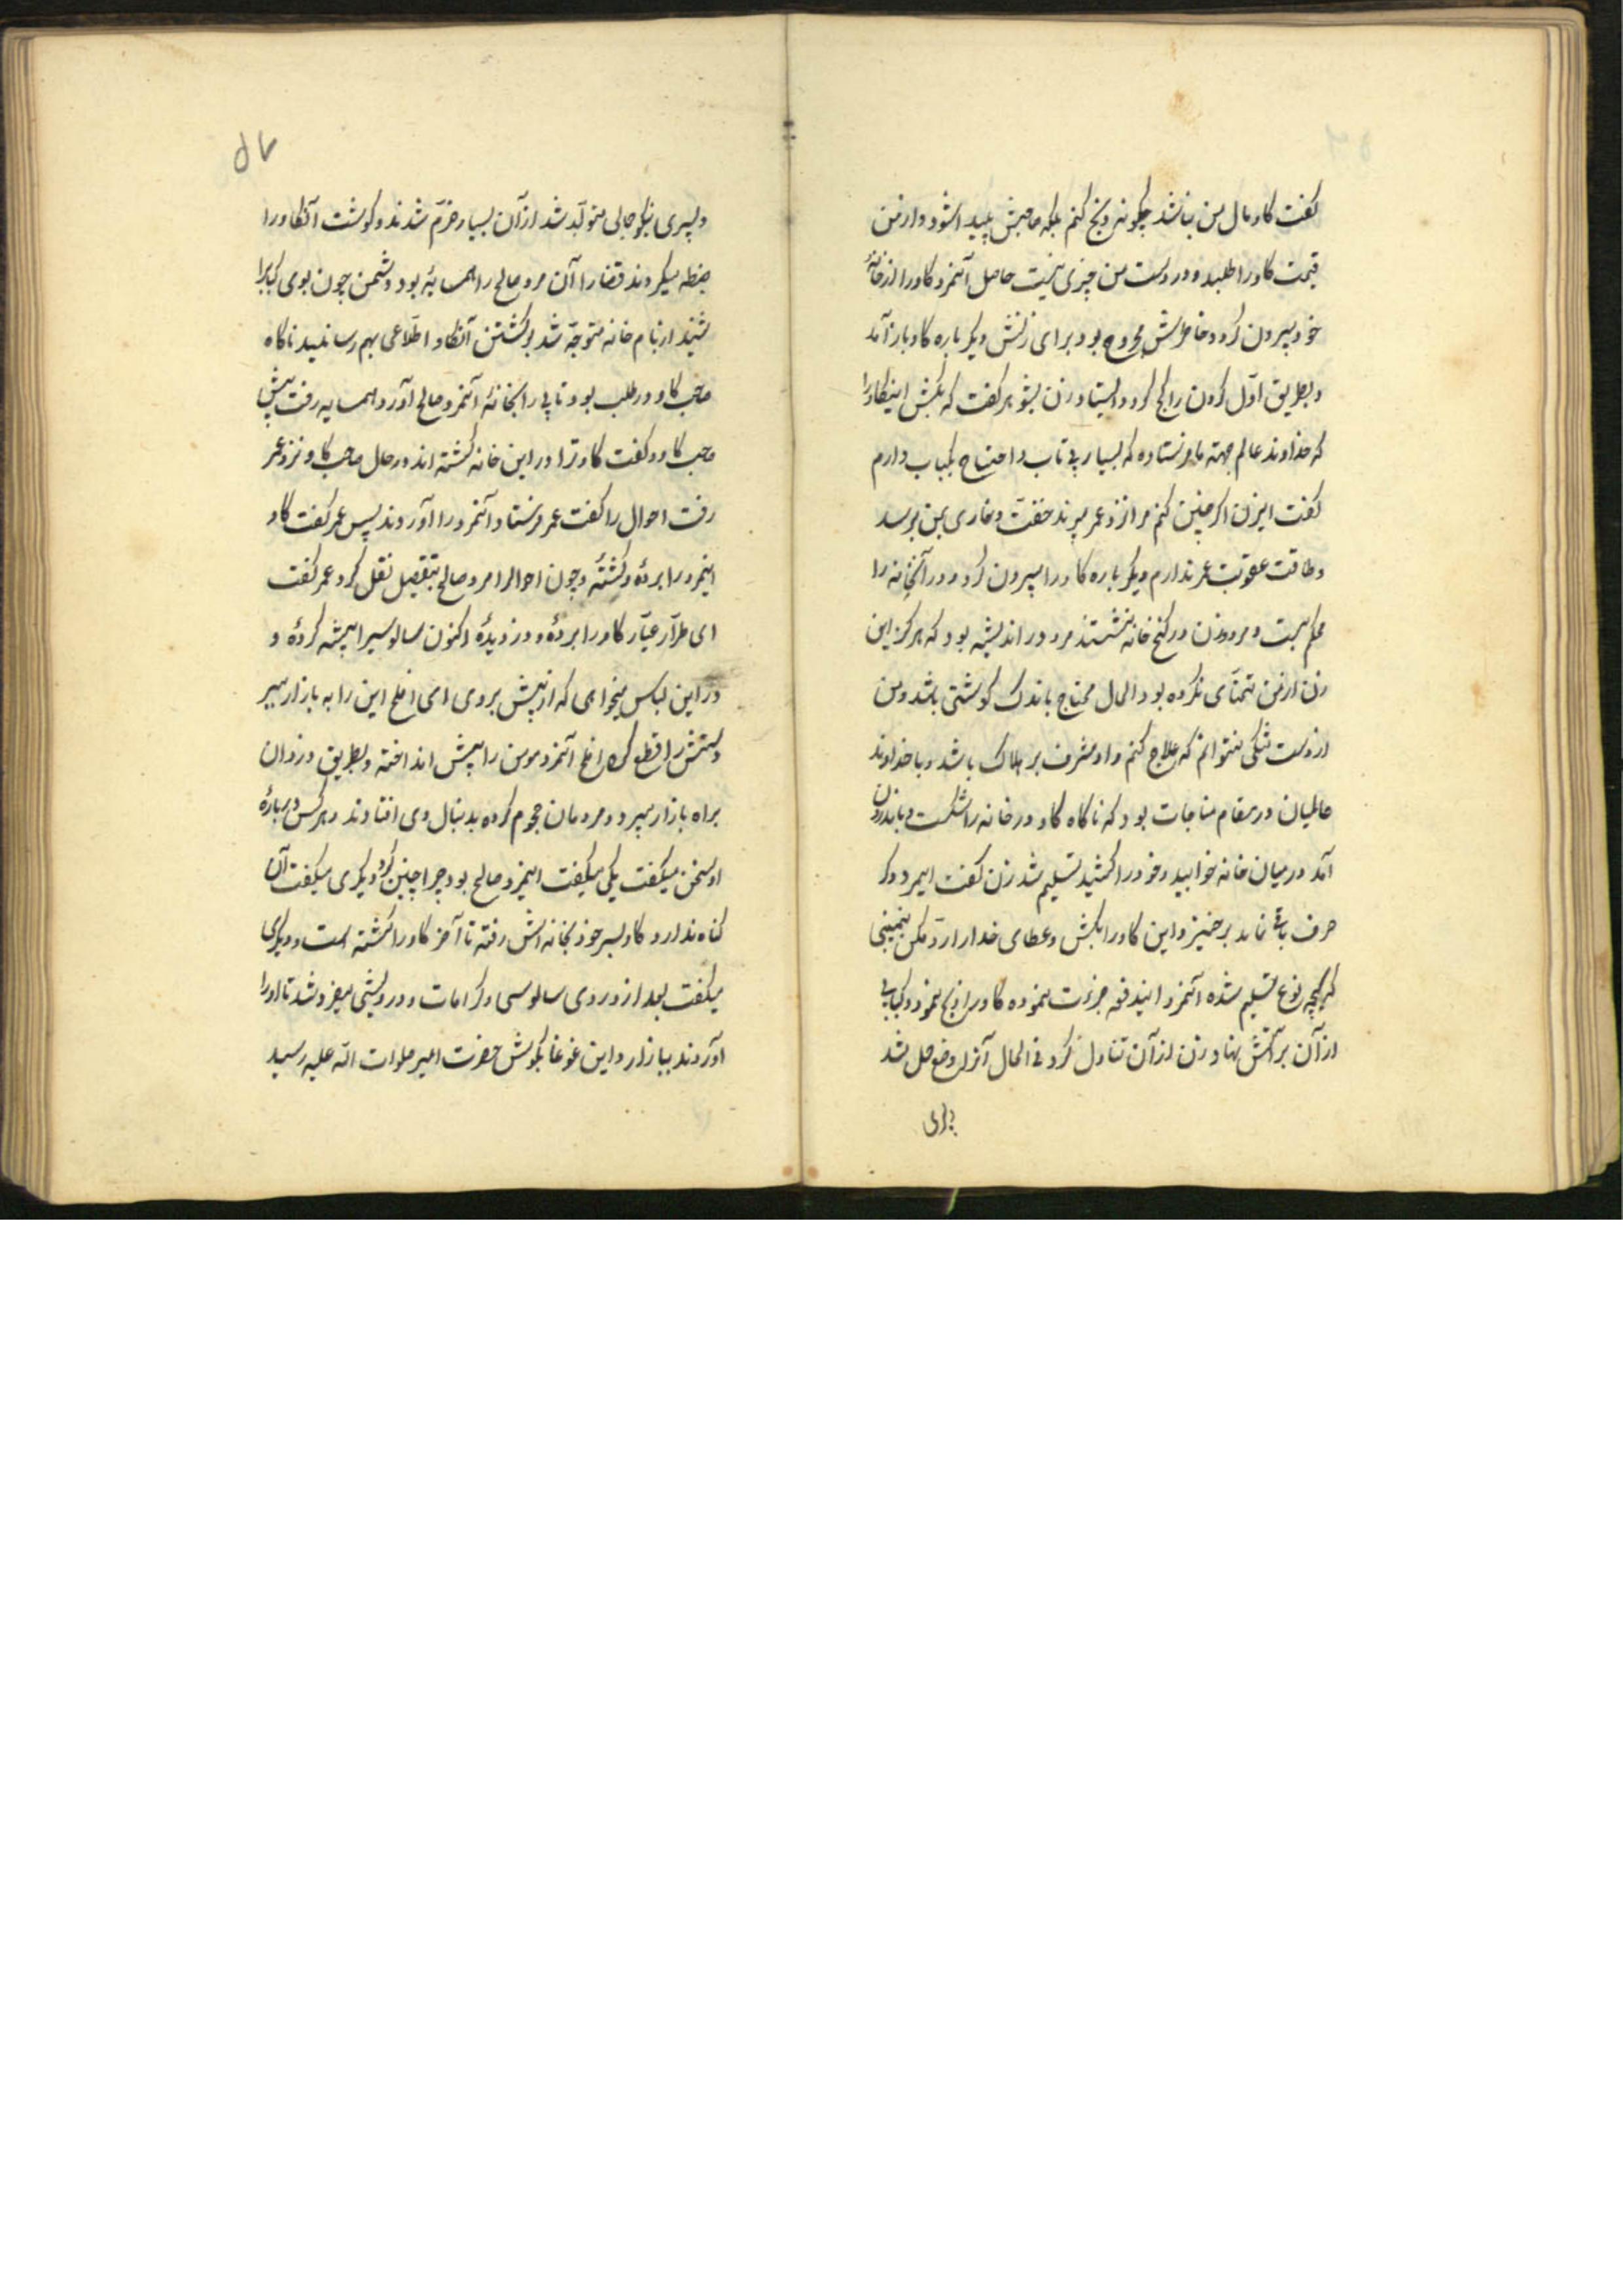 گفت گاو مال من نباشد چگونه ذبح کنم بلکه صاحبش پیدا شود و از من
قیمت گاو را طلبد و در دست من چیزی نیست حاصل آنمرد گاو را از خانهٔ
خود بیرون کرد و خاطرش مجروح بود برای زنش دیگر باره گاو باز آمد
و بطریق اول گردن را کج کرد و ایستاد زن بشوهر گفت که بکش اینگاو را
که خداوند عالم جهته ما فرستاده که بسیار بی تاب و احتیاج بکباب دارم
گفت ایزن اگر چنین کنم مرا نزد عمر برند خفت و خاری بمن برسد
و طاقت عقوبت عمر ندارم دیگر باره گاو را بیرون کرد و در آنخانه را
محکم ببست و مرد و زن در کنج خانه بنشستند مرد در اندیشه بود که هرگز این
زن از من تمنای نکرده بود الحال محتاج باندک گوشتی باشد و من
از دست تنگی نتوانم که علاج کنم و او مشرف بر هلاک باشد و با خداوند
عالمیان در مقام مناجات بود که ناگاه گاو در خانه را شکست و باندرون
آمد در میان خانه خوابید و خود را کشید تسلیم شد زن گفت ایمرد دیگر
حرف باقی نماند برخیز و این گاو را بکش و عطای خدا را رد مکن نمیبینی
که بچه نوع تسلیم شده آنمرد ایندفعه جرئت نموده گاو را ذبح نمود و کبابی
از آن بر آتش نهاد و زن از آن تناول کرد فی الحال آنزن وضع حمل شد
و پسری
۵۷
و پسری نیکو جمالی متولد شد از آن بسیار خرم شدند و گوشت آنگاو را
ضبط میکردند قضا را آن مرد صالح را همسایهٔ بود دشمن چون بوی کباب را
شنید از بام خانه متوجه شد بر کشتن آنگاو اطلاعی بهم رسانید ناگاه
صاحب گاو در طلب بود تا پی را بخانهٔ آنمرد صالح آورد همسایه رفت پیش
صاحب گاو و گفت گاو ترا در این خانه کشته‌اند در حال صاحب گاو نزد عمر
رفت احوال را گفت عمر فرستاد آنمرد را آوردند پس عمر گفت گاو
اینمرد را بردهٔ و کشتهٔ و چون احوال را مرد صالح بتفصیل نقل کرد عمر گفت
ای طرار عیار گاو را بردهٔ و دزدیدهٔ اکنون سالوسی را پیشه کردهٔ و
در این لباس میخواهی که از پیش بروی ای افلح این را به بازار ببر
و دستش را قطع کن افلح آنمرد مومن را پیش انداخته و بطریق دزدان
براه بازار میبرد و مردمان هجوم کرده بدنبال وی افتادند و هر کس در بارهٔ
او سخن میگفت یکی میگفت اینمرد صالح بود چرا چنین کرد و دیگری میگفت آن
گناه ندارد گاو بسر خود بخانه‌اش رفته تا آخر گاو را کشته است و دیگری
میگفت بعد از دزدی سالوسی و کرامات و درویشی میفروشد تا او را
آوردند ببازار و این غوغا بگوش حضرت امیر صلوات الله علیه رسید